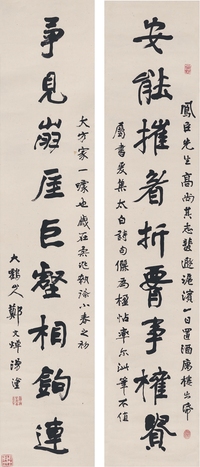 鳳臣先生高尚其志蜚遯滬濱一日置酒樓出紙
安能摧眉折腰事權貴
屬書爰集太白詩句儷為楹帖率尔沘筆不值
大方家一噱也歲在柔兆執徐小春之初
爭見崩崖巨壑相鉤連
大鶴山人鄭文焯